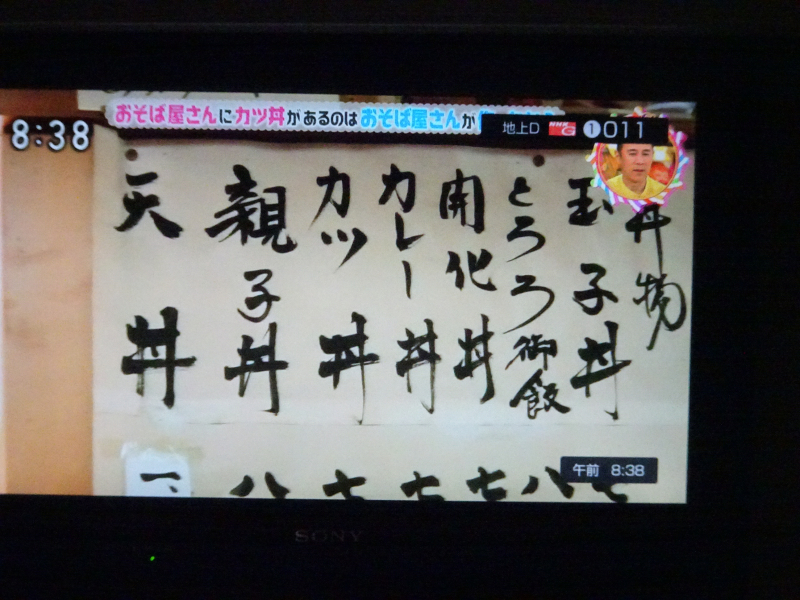 おそば屋さんにカツ丼があるのはおそば屋さんが
8:38
地上D NHK G 1 011
丼物
玉子丼
とろろ御飯
開化丼
カレー丼
カツ丼
親子丼
天丼
午前 8:38
SONY